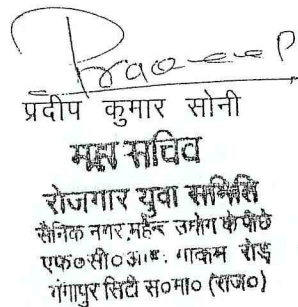 Pradeep
प्रदीप कुमार सोनी
महा सचिव
रोजगार युवा समिति
सैनिक नगर, महेन्द्र उद्योग के पीछे
एफ०सी०आई० गोदाम रोड
गंगापुर सिटी स०मा० (राज०)